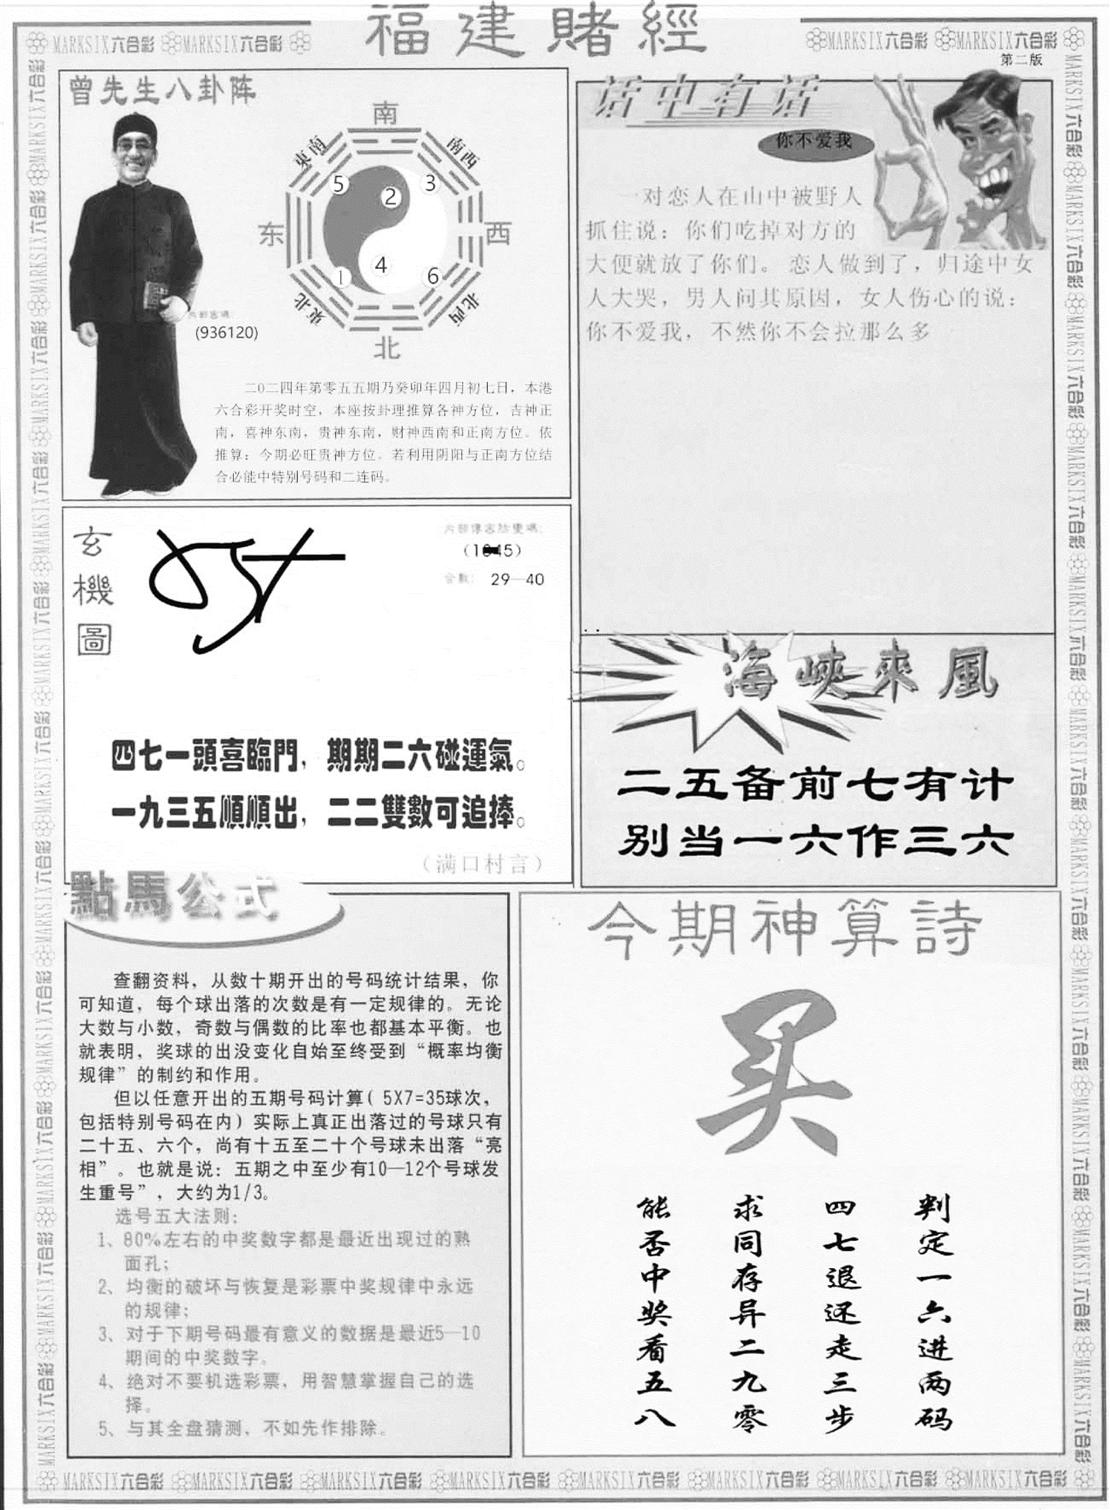 福建賭經
MARKSIX六合彩 MARKSIX六合彩
MARKSIX六合彩 MARKSIX六合彩
第二版
曾先生八卦阵
南
東南
南西
5
2
3
东
西
1
4
6
東北
北西
北
(936120)
二0二四年第零五五期乃癸卯年四月初七日，本港
六合彩开奖时空，本座按卦理推算各神方位，吉神正
南，喜神东南，贵神东南，财神西南和正南方位。依
推算：今期必旺贵神方位。若利用阴阳与正南方位结
合必能中特别号码和二连码。
话中有话
你不爱我
一对恋人在山中被野人
抓住说：你们吃掉对方的
大便就放了你们。恋人做到了，归途中女
人大哭，男人问其原因，女人伤心的说：
你不爱我，不然你不会拉那么多
玄機圖
合數： 29—40
四七一頭喜臨門，期期二六碰運氣。
一九三五順順出，二二雙數可追捧。
（满口村言）
海峽來風
二五备前七有计
别当一六作三六
點馬公式
查翻资料，从数十期开出的号码统计结果，你
可知道，每个球出落的次数是有一定规律的。无论
大数与小数，奇数与偶数的比率也都基本平衡。也
就表明，奖球的出没变化自始至终受到“概率均衡
规律”的制约和作用。
但以任意开出的五期号码计算( 5X7=35球次，
包括特别号码在内）实际上真正出落过的号球只有
二十五、六个，尚有十五至二十个号球未出落“亮
相”。也就是说：五期之中至少有10—12个号球发
生重号”，大约为1/3。
选号五大法则：
1、80%左右的中奖数字都是最近出现过的熟
面孔；
2、均衡的破坏与恢复是彩票中奖规律中永远
的规律；
3、对于下期号码最有意义的数据是最近5—10
期间的中奖数字。
4、绝对不要机选彩票，用智慧掌握自己的选
择。
5、与其全盘猜测，不如先作排除。
今期神算詩
买
判定一六进两码
四七退还走三步
求同存异二九零
能否中奖看五八
MARKSIX六合彩 MARKSIX六合彩 MARKSIX六合彩 MARKSIX六合彩 MARKSIX六合彩 MARKSIX六合彩 MARKSIX六合彩 MARKSIX六合彩